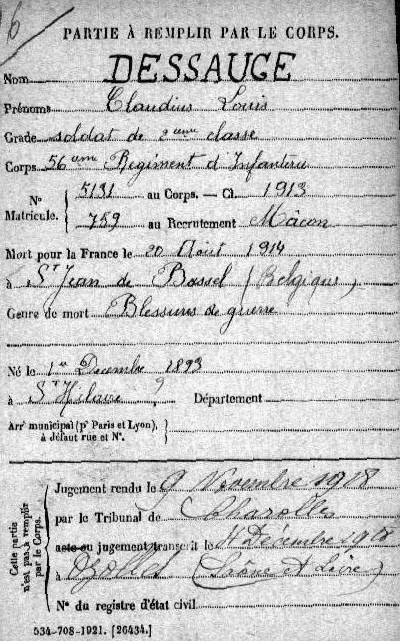 6
PARTIE À REMPLIR PAR LE CORPS.
Nom DESSAUGE
Prénoms Claudius Louis
Grade soldat de 2eme classe
Corps 56eme Régiment d'Infanterie
N° Matricule. { 5131 au Corps. — Cl. 1913
759 au Recrutement Mâcon
Mort pour la France le 20 Août 1914
à St Jean de Bassel (Belgique)
Genre de mort Blessures de guerre
Né le 1er Décembre 1893
à St Hilaire ? Département
Arrt municipal (pr Paris et Lyon), à défaut rue et N°. }
Cette partie n'est pas à remplir par le Corps.
Jugement rendu le 9 Novembre 1918
par le Tribunal de Charolles
acte ou jugement transcrit le 4 Décembre 1918
Ozolles (Saône et Loire)
N° du registre d'état civil
534-708-1921. [26434.]